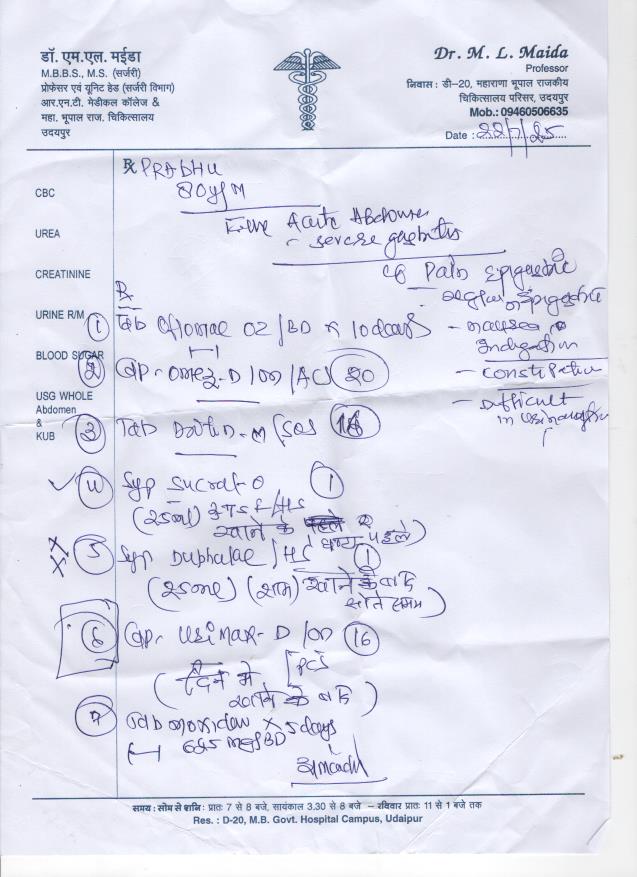 डॉ. एम.एल. मईडा
M.B.B.S., M.S. (सर्जरी)
प्रोफेसर एवं यूनिट हेड (सर्जरी विभाग)
आर.एन.टी. मेडीकल कॉलेज &
महा. भूपाल राज. चिकित्सालय
उदयपुर
Dr. M. L. Maida
Professor
निवास : डी-20, महाराणा भूपाल राजकीय
चिकित्सालय परिसर, उदयपुर
Mob.: 09460506635
Date : 22/7/25
Rx PRABHU
80yr M
Acute Abdomen
- severe
c/o Pain Epigastric
Epigastric
- nausea
Indigestion
- Constipation
- Difficult
in
CBC
UREA
CREATININE
URINE R/M
BLOOD SUGAR
USG WHOLE
Abdomen
&
KUB
Rx
1 Tab OZ / BD x 10 days
2 Cap - Omez-D / OD / AC 20
3 Tab -M / SOS
4 Syp Sucral-O 1
खाने के पहले
पहले)
5 Syp Duphalac / HS 1
(शाम) खाने के बाद
सोते समय)
6 Cap - Urimax-D / OD 16
(दिन में PCS
खाने के बाद)
7 Tab x 5 days
625 mg BD
समय : सोम से शनि : प्रातः 7 से 8 बजे, सायंकाल 3.30 से 8 बजे – रविवार प्रातः 11 से 1 बजे तक
Res. : D-20, M.B. Govt. Hospital Campus, Udaipur